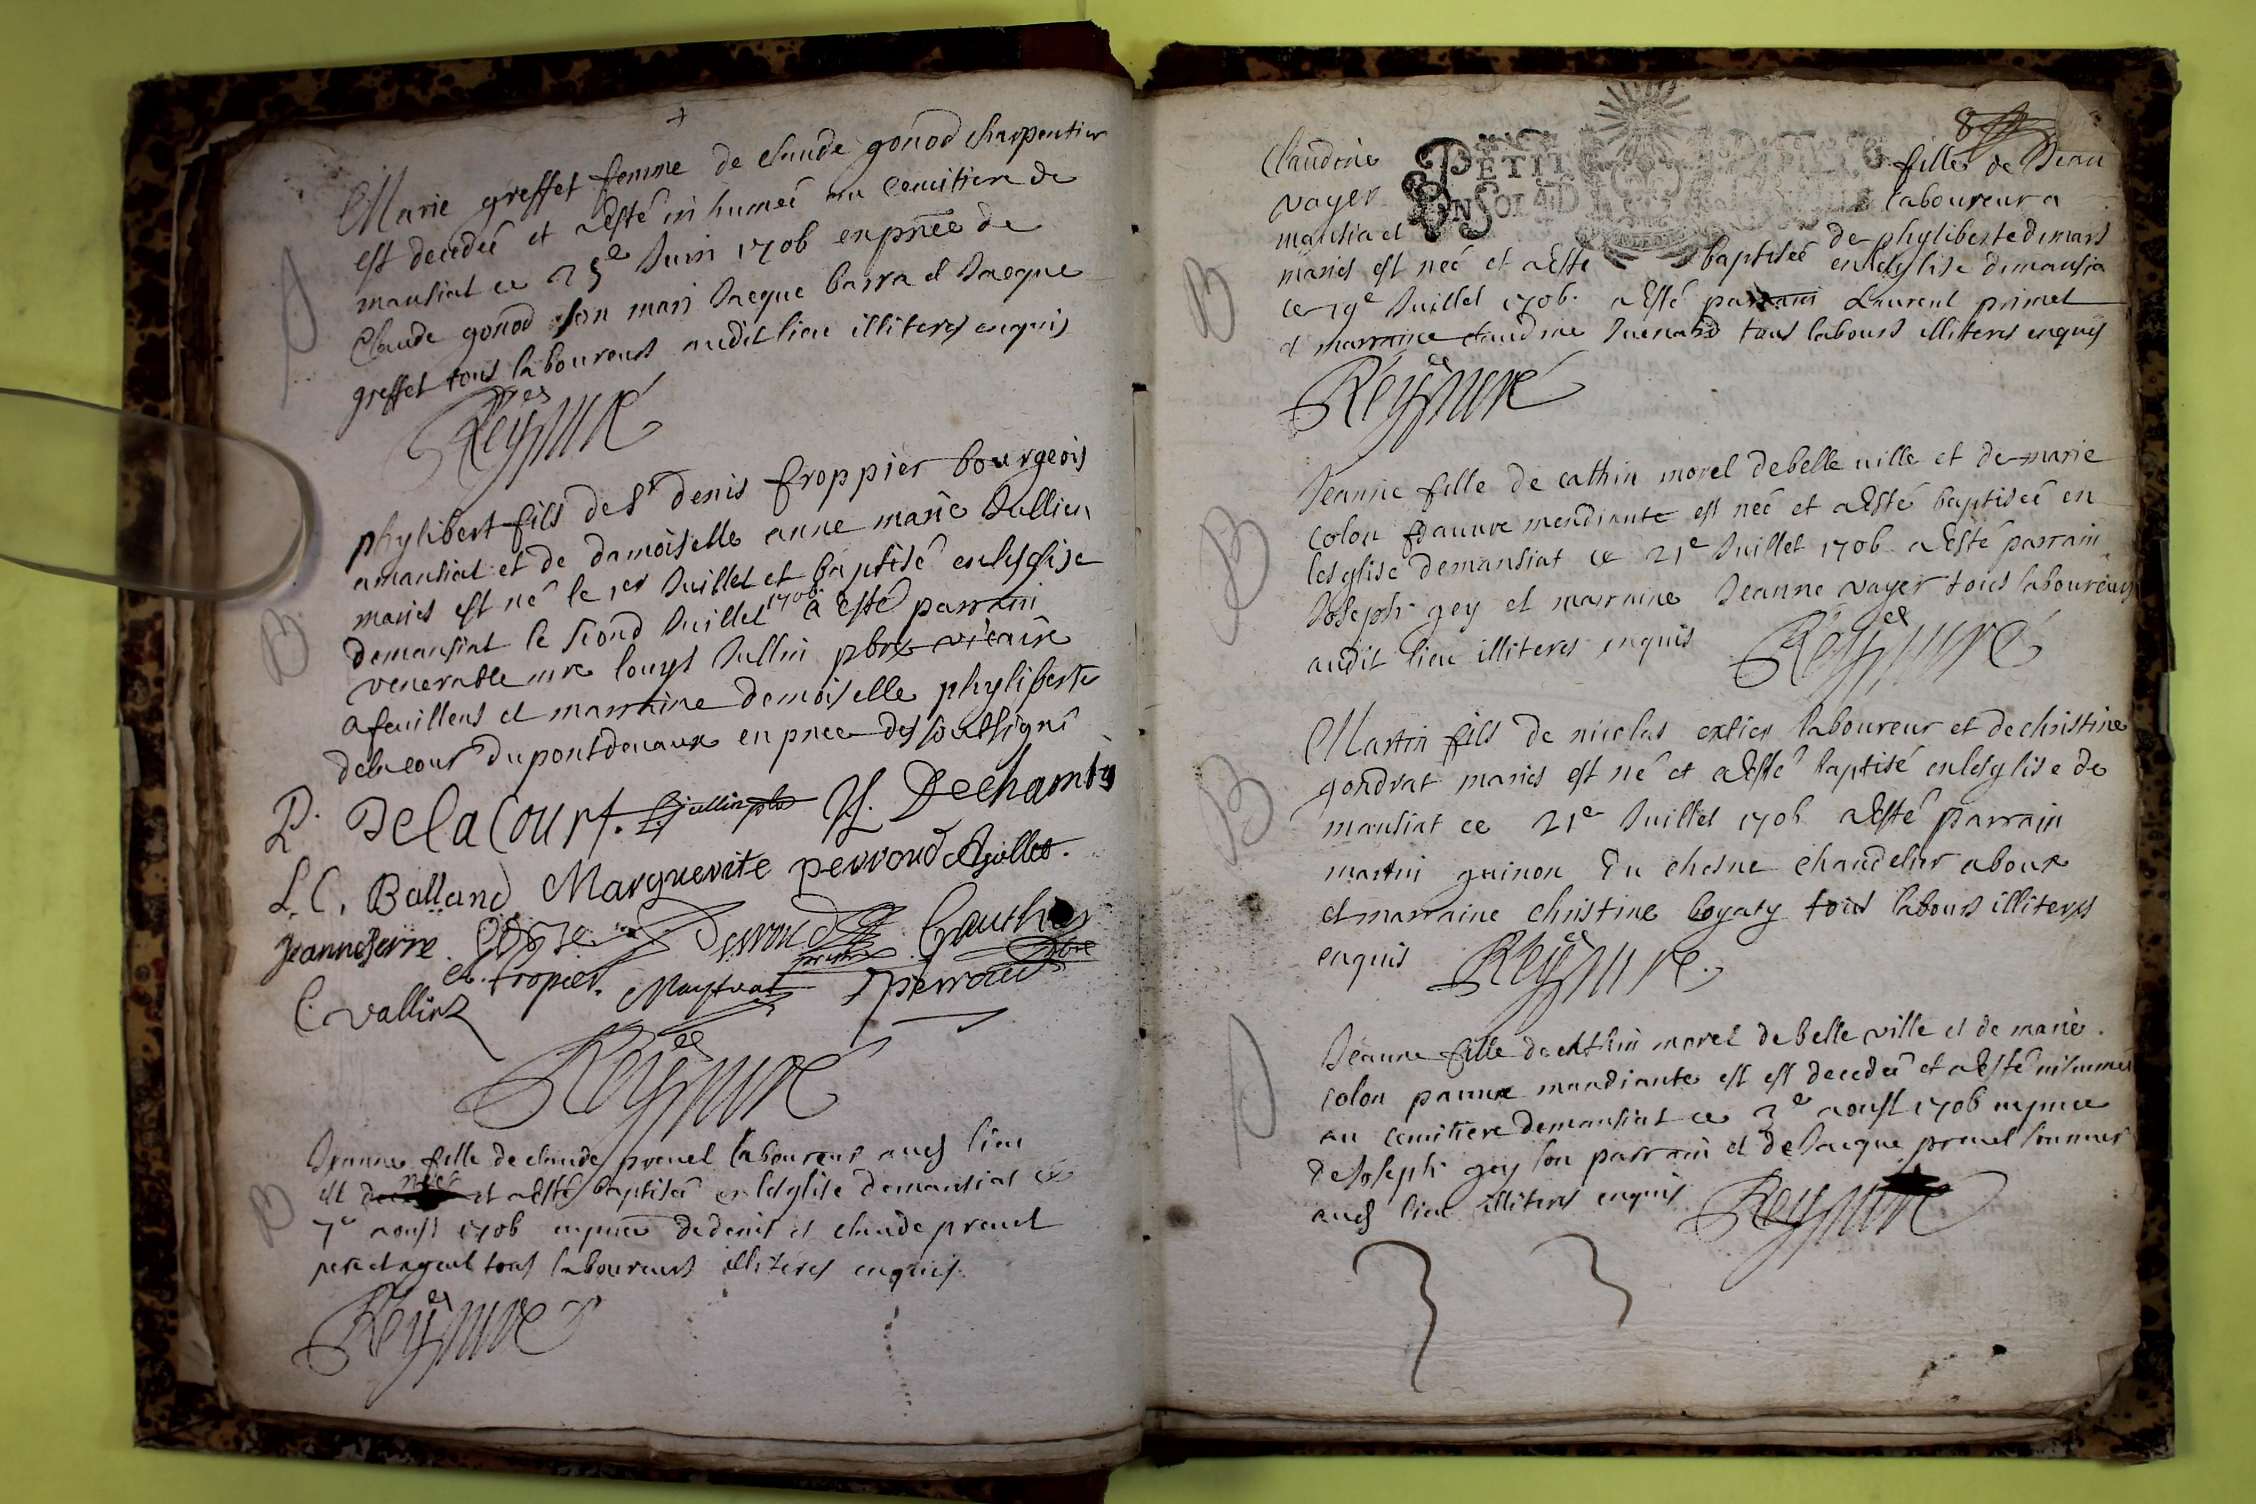 Marie greffet femme de Claude gonod charpentier
est decedeé et a Esté inhumeé au Cemitiere de
mansiat ce 25e Juin 1706 enpñce de
Claude gonod son mari Jacque barra et Jacque
greffet tous laboureurs audit lieu illiteres enquis
Reyssure
phylibert fils de Sr denis froppier bourgeois
amansiat et de damoiselle anne marie Jullien
mariés est né le 1er Juillet et baptisé enlesglise
demansiat le second Juillet 1706 a Esté parrain
venerable mre louys Jullin pbre vicaire
afeuillens et marraine demoiselle phyliberte
delacour dupontdevaux en pnce des soubsigné
P. Delacourt. Jullin pbr Dechamps
L. C. Balland Marguerite perroud
Jeanne ferre perroud Gauthier
C. vallin froppier. perroud
Reyssure
Jeanne fille de claude prevel laboureur aud lieu
est neé et a Esté baptiseé en lesglise demansiat ce
7e aoust 1706 enpnce dedenis et claude prevel
pere et ayeul tous laboureurs illiteres enquis
Reyssure
8
PETIT PAPIER
UN SOL
Claudine fille de Jean
vayer laboureur a
mansia et de phyliberte demars
mariés est neé et a Esté baptiseé enlesglise demansia
ce 19e Juillet 1706. a Esté parrain Laurent primet
et marraine claudine Juenard tous labours illiteres enquis
Reyssure
Jeanne fille de cathin morel debelle ville et de marie
colon pauvre mendiante est neé et a Esté baptiseé en
lesglise demansiat ce 21e Juillet 1706 a Esté parrain
Joseph gey et marraine Jeanne vayer tous laboureurs
audit lieu illiteres enquis Reyssure
Martin fils de nicolas extier laboureur et dechristine
gondrat mariés est né et a Esté baptisé enlesglise de
mansiat ce 21e Juillet 1706 a Esté parrain
martin guinon du chesne chandelier aboux
et marraine christine boyaty tous labours illiteres
enquis Reyssure.
Jeanne fille decathin morel debelle ville et de marie.
colon pauvre mandiante est est decedeé et a Esté inhumeé
au cemitiere demansiat ce 2e aoust 1706 enpnce
deJoseph gey son parrain et deJacque prevel
aud lieu illiteres enquis Reyssure